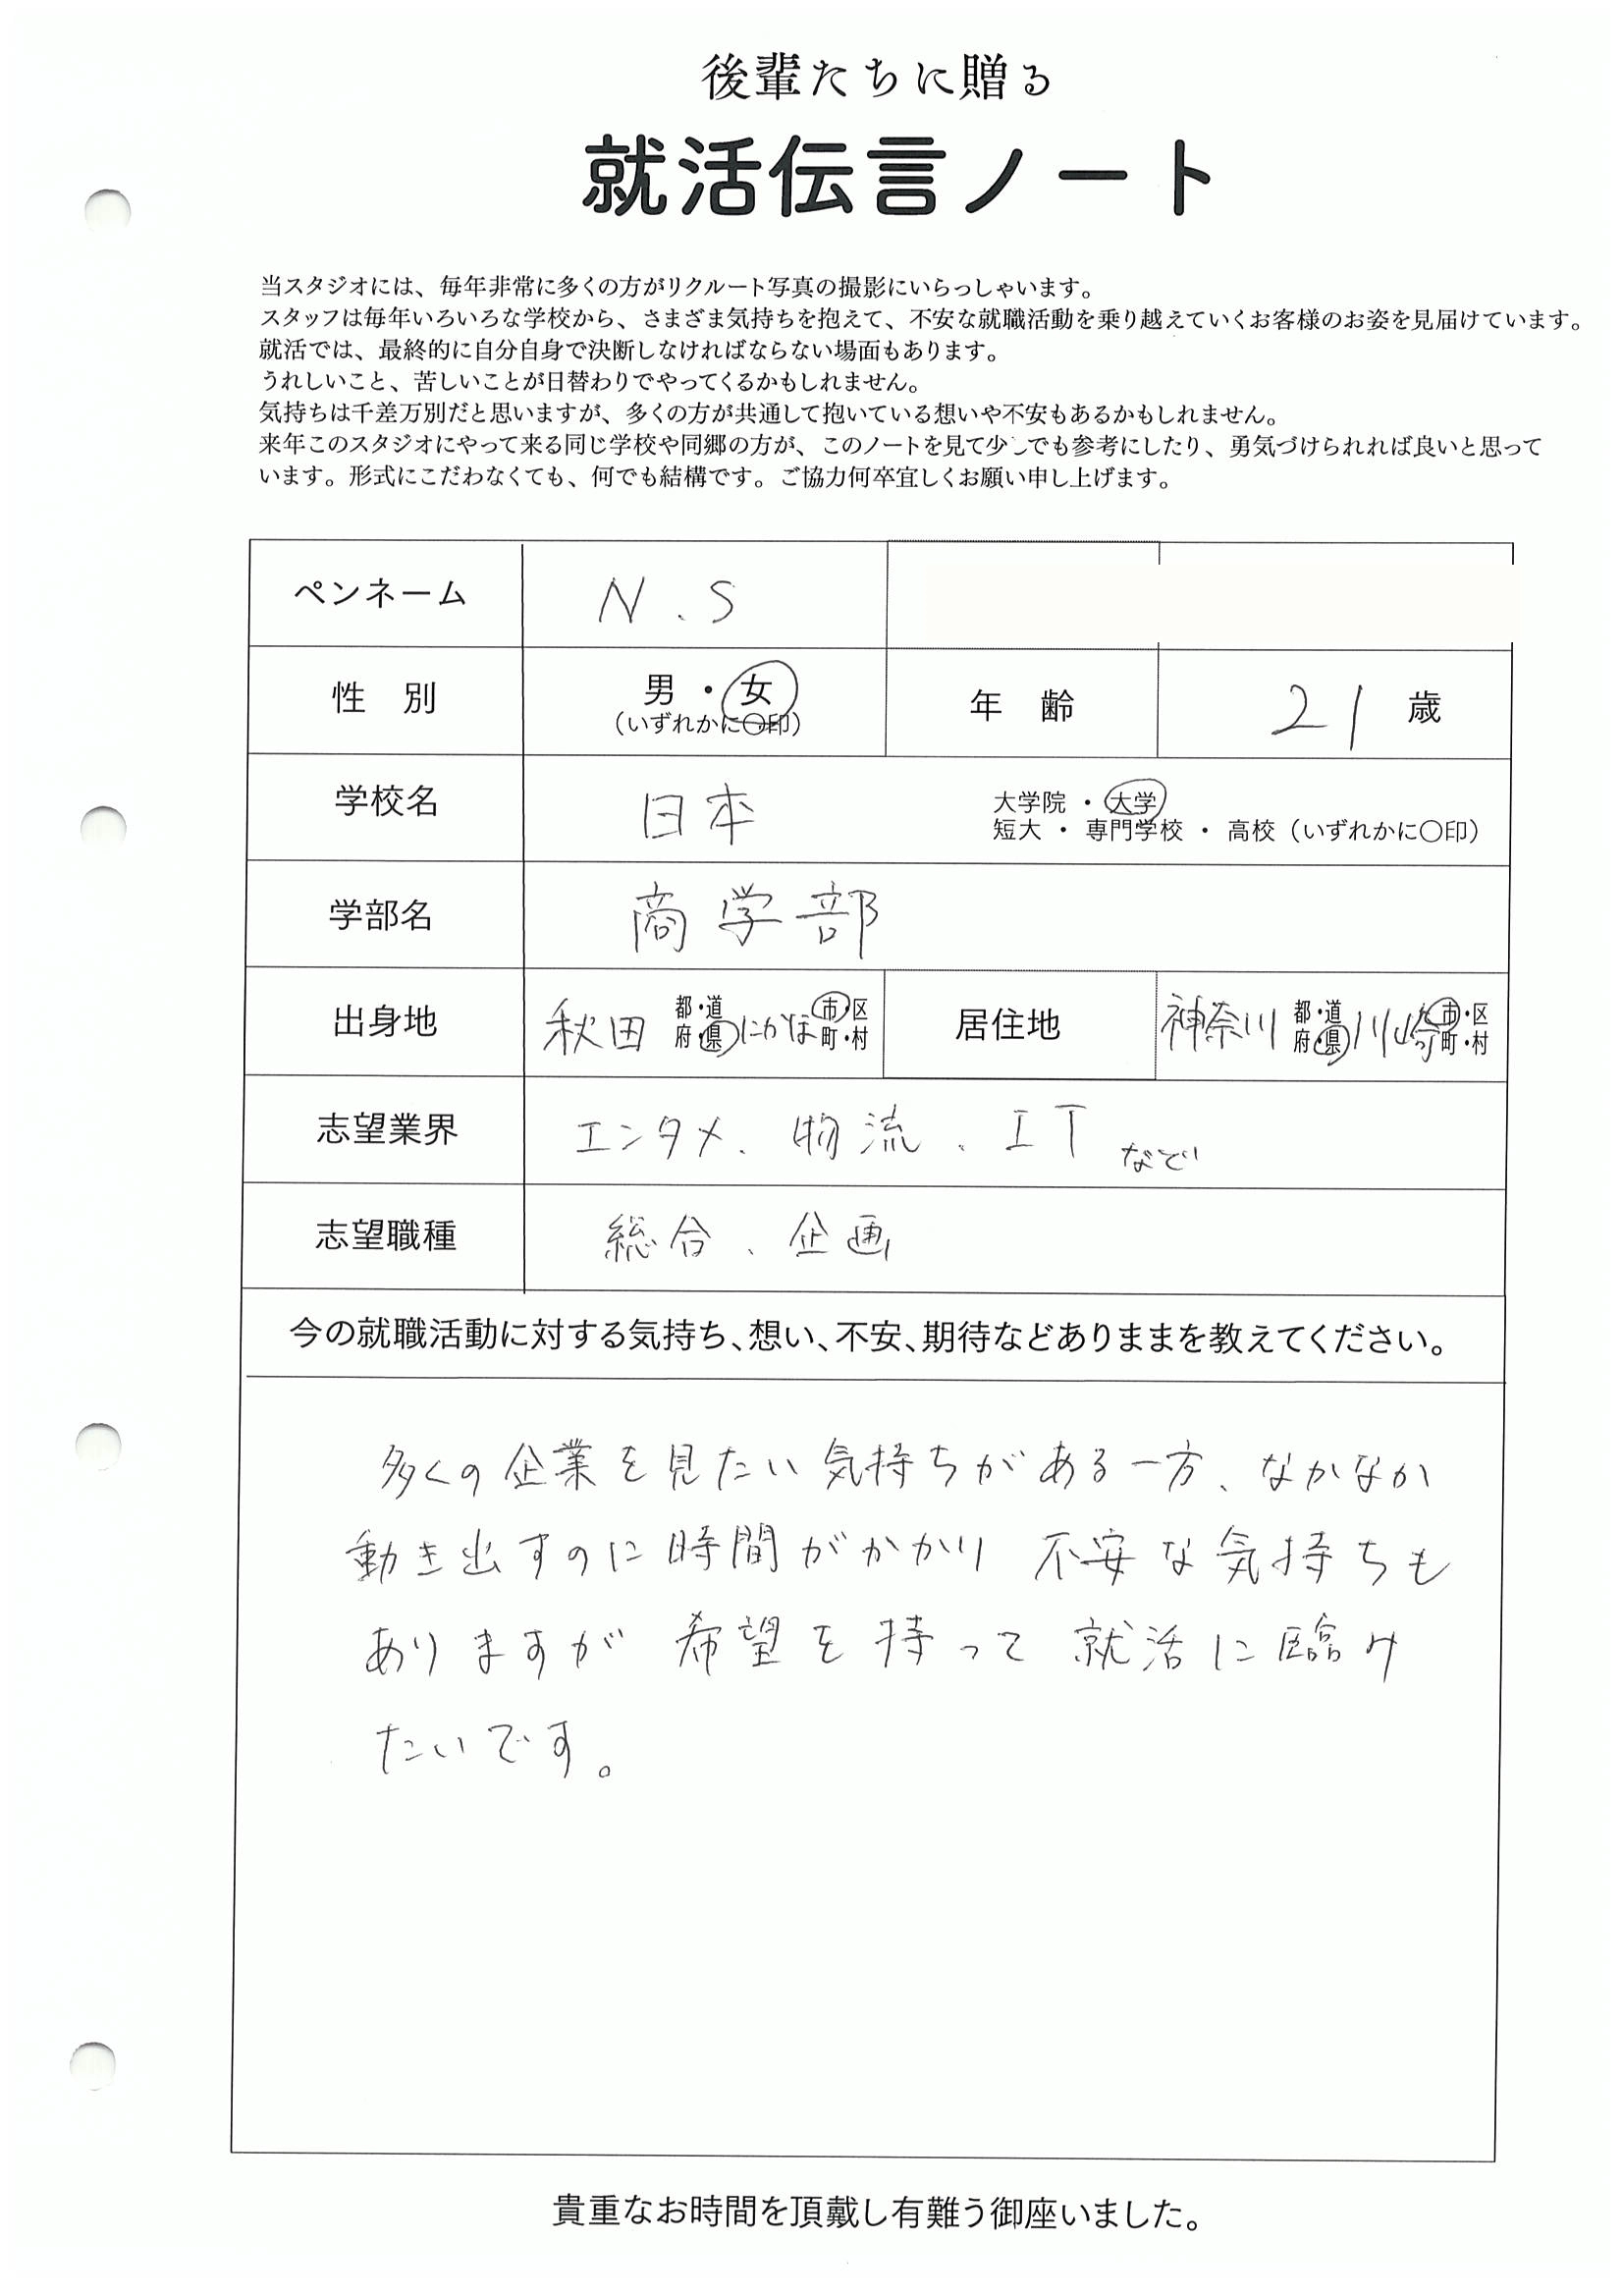 後輩たちに贈る
就活伝言ノート
当スタジオには、毎年非常に多くの方がリクルート写真の撮影にいらっしゃいます。
スタッフは毎年いろいろな学校から、さまざま気持ちを抱えて、不安な就職活動を乗り越えていくお客様のお姿を見届けています。
就活では、最終的に自分自身で決断しなければならない場面もあります。
うれしいこと、苦しいことが日替わりでやってくるかもしれません。
気持ちは千差万別だと思いますが、多くの方が共通して抱いている想いや不安もあるかもしれません。
来年このスタジオにやって来る同じ学校や同郷の方が、このノートを見て少しでも参考にしたり、勇気づけられれば良いと思って
います。形式にこだわなくても、何でも結構です。ご協力何卒宜しくお願い申し上げます。
ペンネーム N.S
性 別 男・女 (いずれかに〇印) 年 齢 21 歳
学校名 日本 大学院 ・ 大学
短大 ・ 専門学校 ・ 高校 (いずれかに〇印)
学部名 商学部
出身地 秋田 都・道府・県 にかほ 市・区町・村 居住地 神奈川 都・道府・県 川崎 市・区町・村
志望業界 エンタメ、物流、IT など
志望職種 総合、企画
今の就職活動に対する気持ち、想い、不安、期待などありままを教えてください。
多くの企業を見たい気持ちがある一方、なかなか
動き出すのに時間がかかり 不安な気持ちも
ありますが 希望を持って 就活に臨み
たいです。
貴重なお時間を頂戴し有難う御座いました。